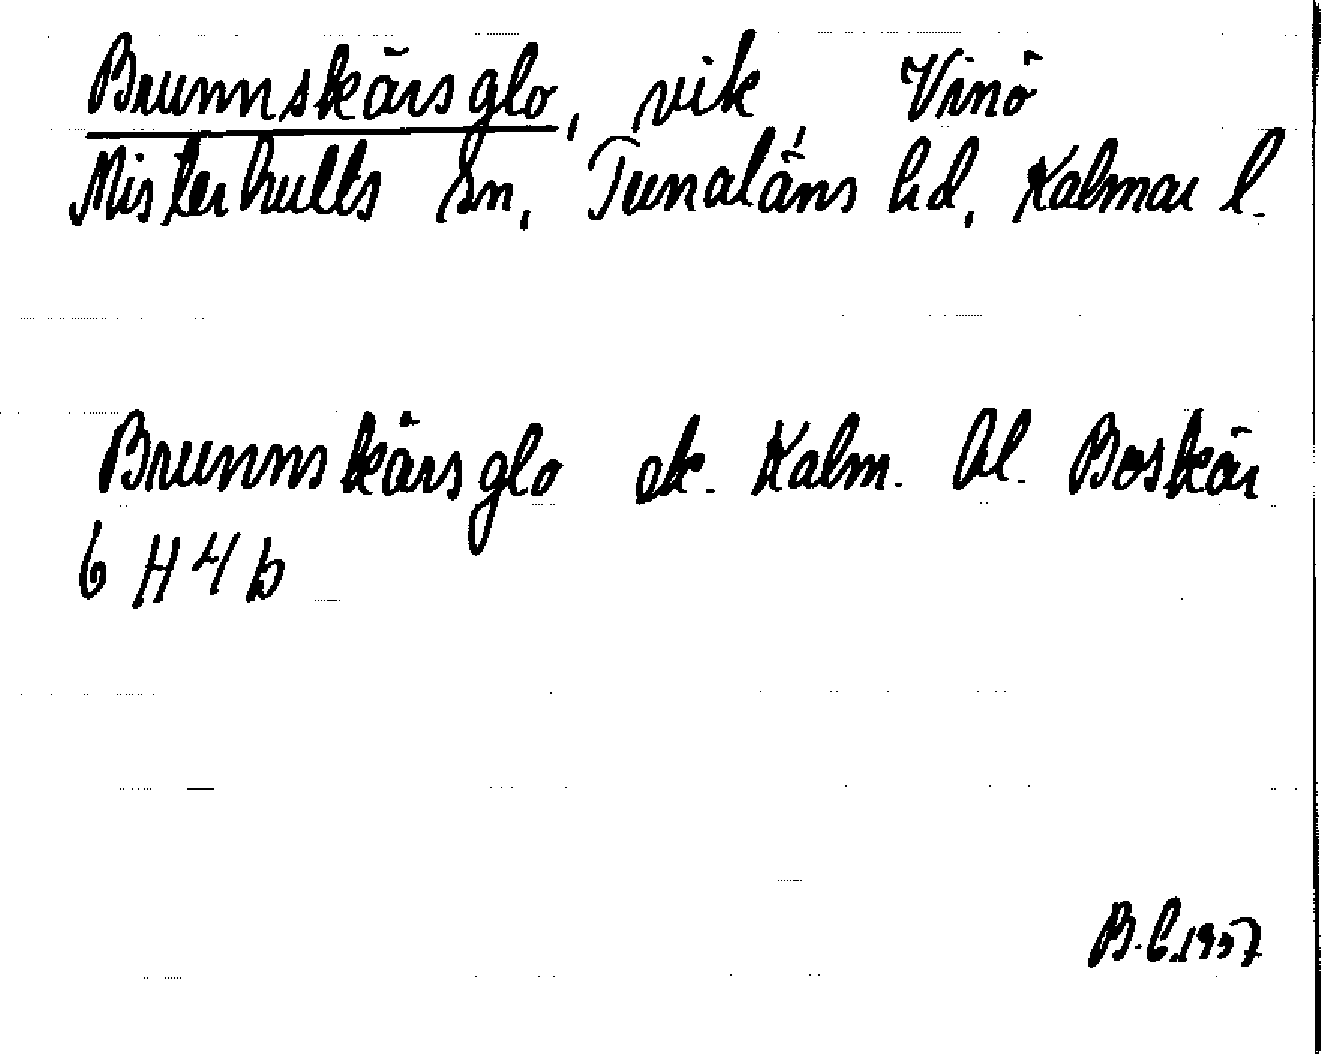 Brunnskärsglo, vik, Vinö
Misterhults sn, Tunaläns hd, Kalmar l.
Brunnskärsglo ek. Kalm. bl. Boskär
6 H 4 b
B.C.1937